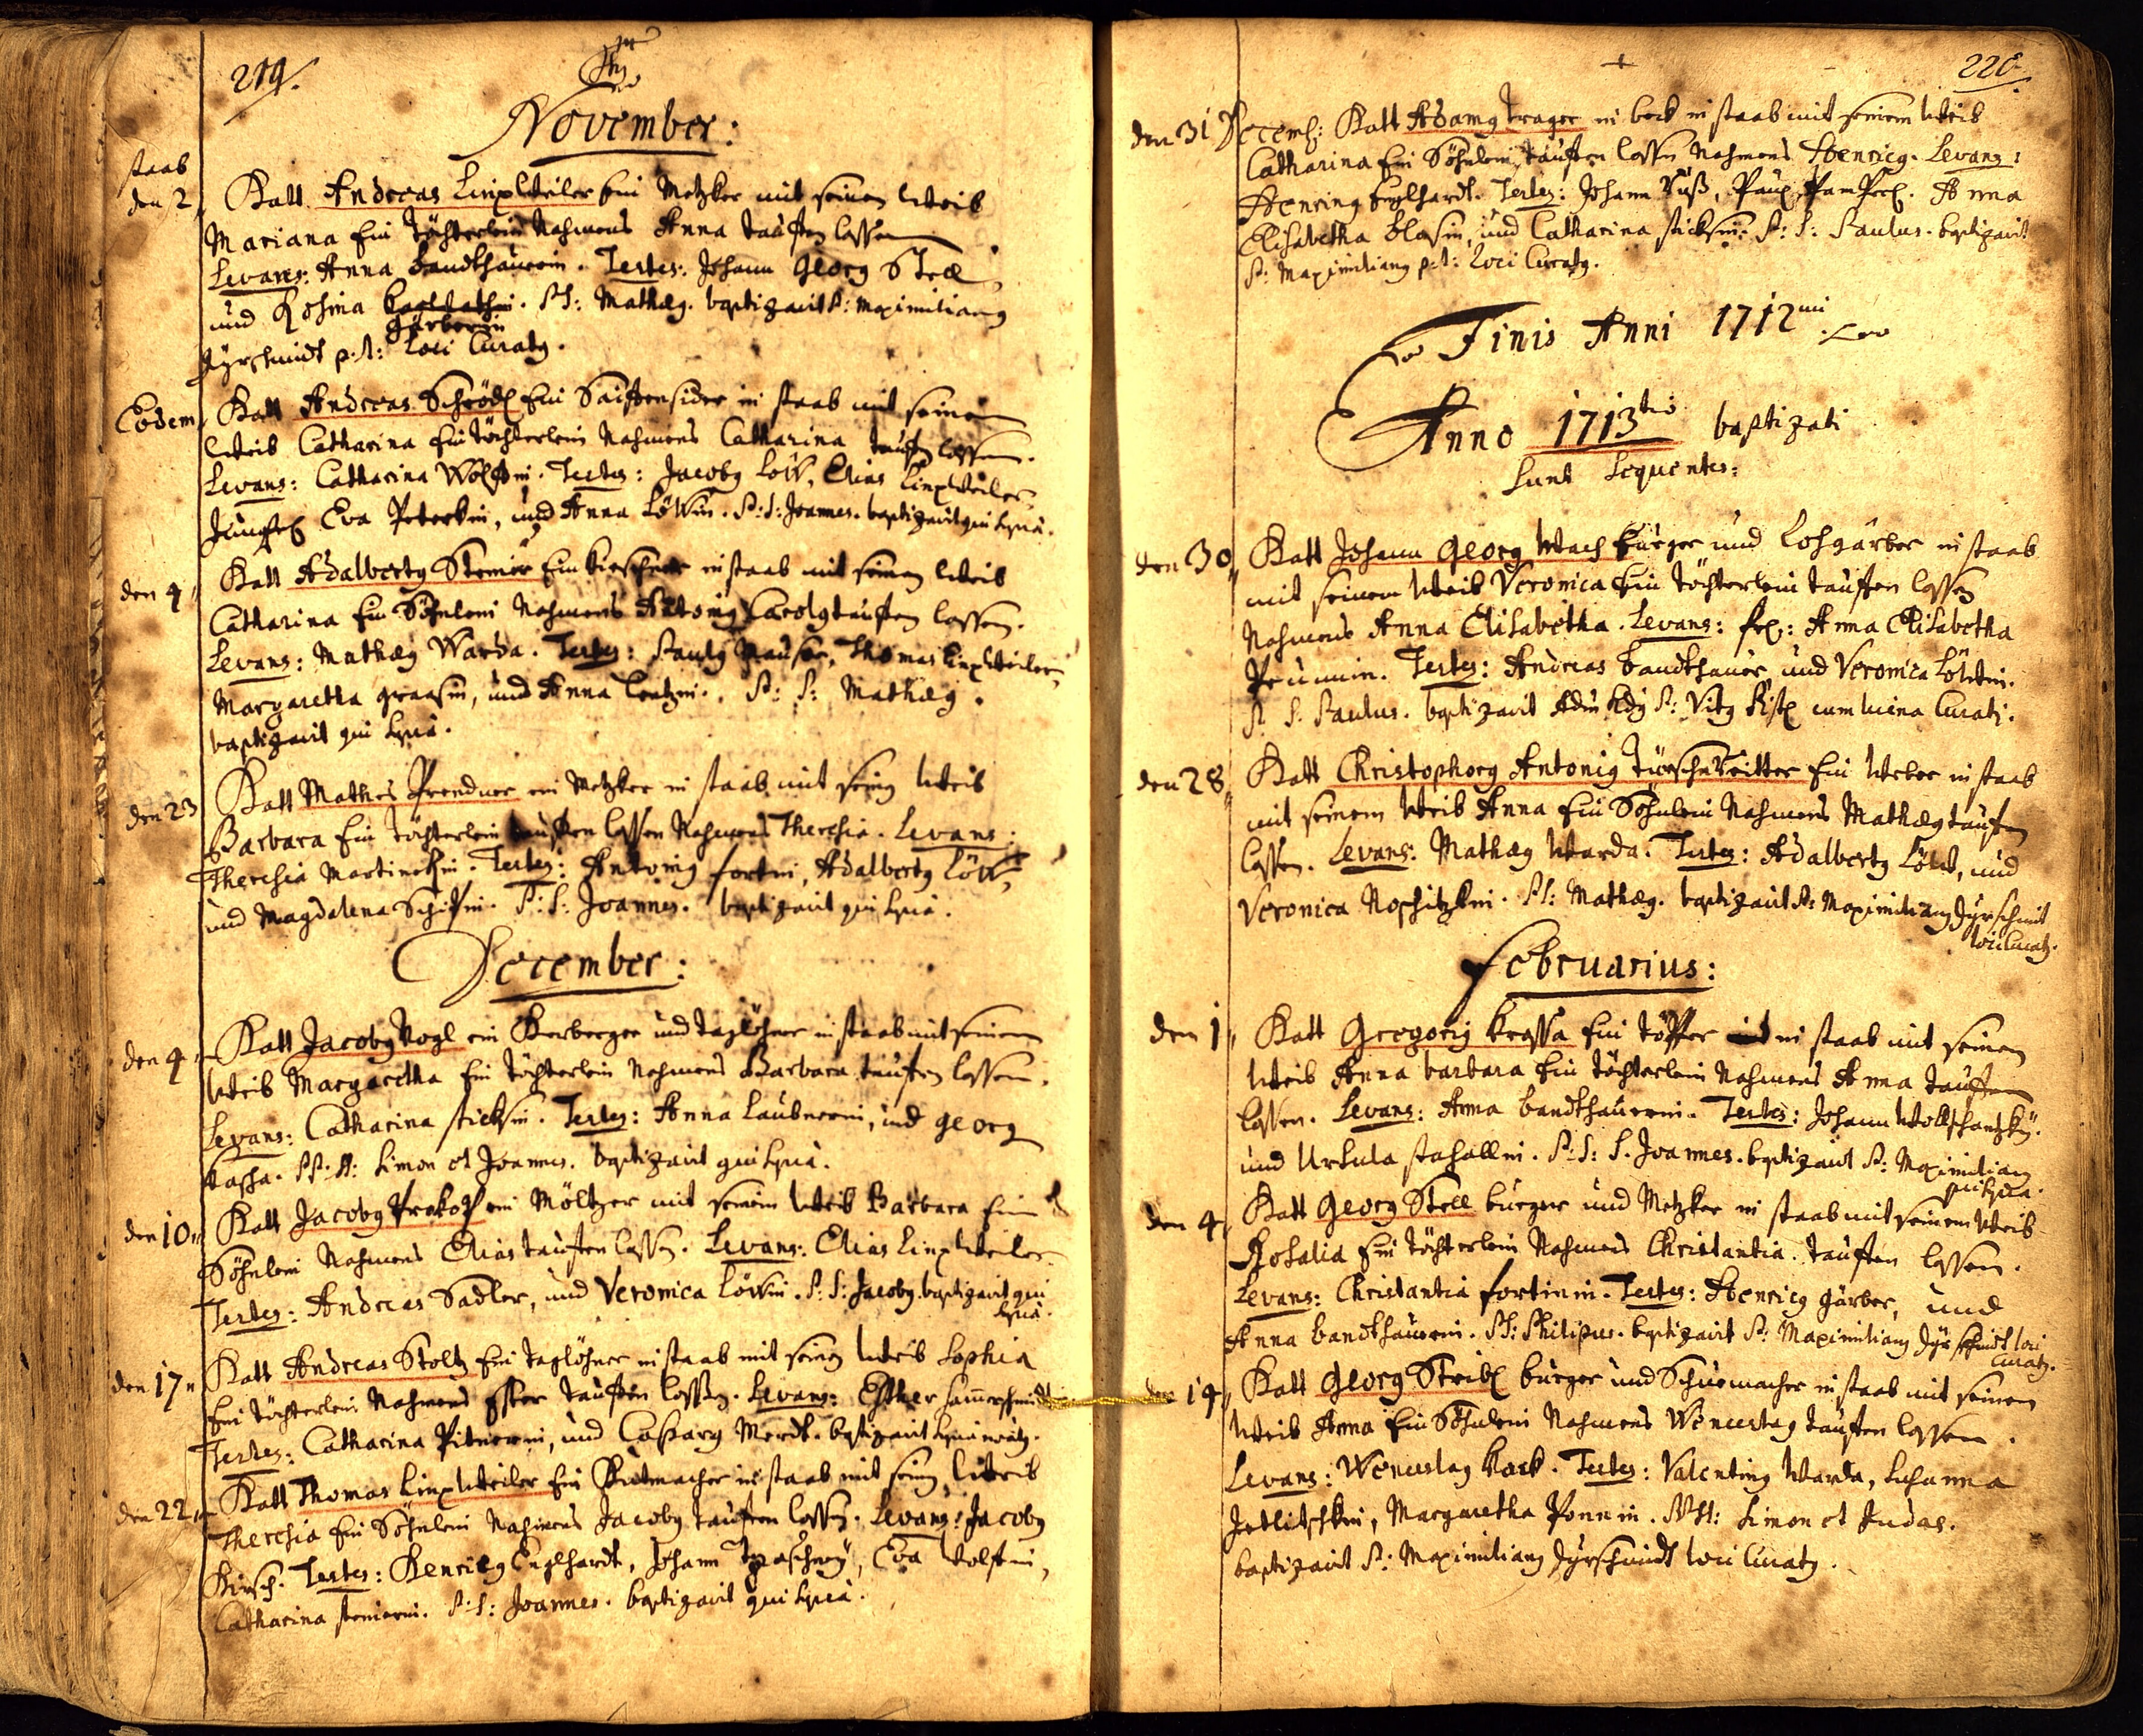 219.
November:
staab
den 2 Hatt Andreas Linxweiler Ein Metzker mit seinem Weib
Mariana Ein Töchterlein Nahmens Anna tauffen lassen
Levans: Anna bandthauerin. Testes: Johann Georg Strell
und Rosina
gärberin
P.S: Mathæg. baptizavit P: Maximiliang
Dyrschmidt p.t: Loci Curatg.
Eodem Hatt Andreas Schrödl Ein Saiffensider in staab mit seinem
Weib Catharina Ein Töchterlein Nahmens Catharina tauffen lassen.
Levans: Catharina Wolffin. Testes: Jacobg Löw, Elias Linxweiler
Jungfr Eva Peterlin, und Anna Löwin. P.S: Joannes. baptizavit qui supra.
den 4 Hatt Adalbertg Steiner Ein Kirschner in staab mit seinem Weib
Catharina Ein Söhnlein Nahmens Antonig Carolg tauffen lassen.
Levans: Mathæg Warda. Testes: Paulg Mauser, Thomas Linxweiler,
Margaretha graasin, und Anna P: S: Mathæg.
baptizavit qui supra.
den 23 Hatt Mathes Prendner ein Metzker in staab mit seing Weib
Barbara Ein Töchterlein tauffen lassen Nahmens Theresia. Levans:
Theresia Martinekin. Testes: Antonig fortin, Adalbertg Löw,
und Magdalena Schifin. P:S: Joannes. baptizavit qui supra.
December:
den 4 Hatt Jacobg Vogl ein Herberger und taglöhner in staab mit seinem
Weib Margaretha Ein Töchterlein Nahmens Barbara tauffen lassen.
Levans: Catharina sticksin. Testes: Anna Laubnerin, und georg
kascha. PP.SS: Simon et Joannes. baptizavit qui supra.
den 10 Hatt Jacobg Prokopf ein Möltzer mit seinem Weib Barbara Ein
Söhnlein Nahmens Elias tauffen lassen. Levans: Elias Linxweiler
Testes: Andreas Sadler, und Veronica Löwin. P.S: Jacobg. baptizavit qui
supra.
den 17 Hatt Andreas Stoltz Ein taglöhner in staab mit seing Weib Sophia
Ein Töchterlein Nahmens Ester tauffen lassen. Levans: Esther
Testes: Catharina Pitnerin, und Casparg Merdt. baptizavit supra
den 22 Hatt Thomas Linxweiler Ein Hutmacher in staab mit seing Weib
Theresia Ein Söhnlein Nahmens Jacobg tauffen lassen. Levans: Jacobg
Kirsch. Testes: Henricg Englhardt, Johann Eva Wolffin,
Catharina steinerin. P.S: Joannes. baptizavit qui supra.
220
den 31 Decemb: Hatt Adamg trager in staab mit seinem Weib
Catharina Ein Söhnlein tauffen lassen Nahmens Henricg. Levans:
Henricg Englhardt. Testes: Johann Anna
Elisabetha blasin, und Catharina sticksin. P: S: Paulus. baptizavit
P: Maximiliang p.t: Loci Curatg.
Finis Anni 1712
Anno 1713tio baptizati
Sunt Sequentes:
den 30 Hatt Johann Georg Wach burger und Lohgärber in staab
mit seinem Weib Veronica Ein Töchterlein tauffen lassen
Nahmens Anna Elisabetha. Levans: Anna Elisabetha
Testes: Andreas bandthauer, und Veronica Löwin.
P. S. Paulus. baptizavit P: Vitg cum Curati.
den 28 Hatt Christophorg Antonig türschnritter Ein Weber in staab
mit seinem Weib Anna Ein Söhnlein Nahmens Mathæg tauffen
lassen. Levans: Mathæg Warda. Testes: Adalbertg Löw, und
Veronica P.S: Mathæg. baptizavit P: Maximiliang Dyrschmit
loci Curatg.
Februarius:
den 1 Hatt Gregorig krassa Ein töpffer in staab mit seinem
Weib Anna barbara Ein Töchterlein Nahmens Anna tauffen
lassen. Levans: Anna bandthauerin. Testes: Johann
und Ursula stahallin. P:S: S. Joannes. baptizavit P: Maximilian
qui supra.
den 4 Hatt Georg Strell burger und Metzker in staab mit seinem Weib
Rosalia Ein Töchterlein Nahmens Christantia tauffen lassen.
Levans: Christantia fortinin. Testes: Henricg gärber, und
Anna bandthauerin. P.S: Philippus. baptizavit P: Maximiliang Dyrschmidt loci
Curatg.
den 19 Hatt Georg Stribl burger und Schumacher in staab mit seinem
Weib Anna Ein Söhnlein Nahmens Wenceslag tauffen lassen.
Levans: Wenceslag kack. Testes: Valenting Warda, Susanna
Jetlitschkin, Margaretha Ponnin. PP.SS: Simon et Judas.
baptizavit P: Maximiliang Dyrschmidt loci Curatg.